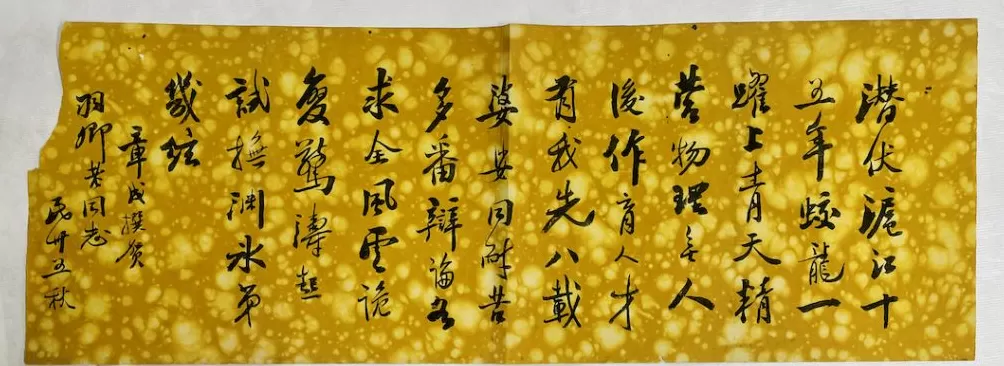 潜伏滬江十
五年蛟龍一
躍上青天精
营物理無人
後作育人才
有我先八載
婆娑同耐苦
多番辯論各
求全風雲詭
變驚濤起
試撫淵冰第
幾絃
章成撰賀
羽卿老同志
民卅五秋